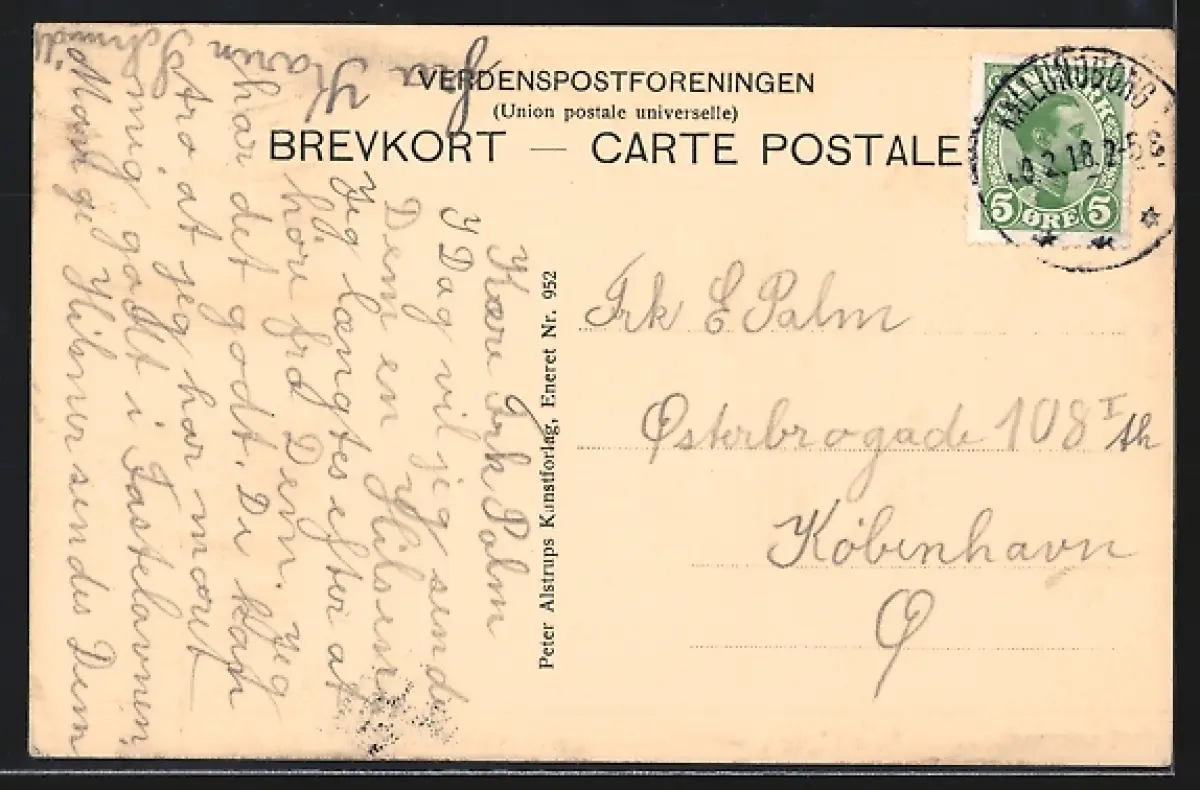 VERDENSPOSTFORENINGEN
(Union postale universelle)
BREVKORT — CARTE POSTALE
KALLUNDBORG
2.18.
DANMARK
5 ØRE 5
Kære Frk Palm
I Dag vil jeg sende
Dem en Hilsen
jeg længtes efter at
høre fra Dem. Jeg
har det godt. De kan
tro at jeg har moret
mig godt i Fastelavnen
Mange Hilsner sendes Dem
fra Karin
Schmidt
Peter Alstrups Kunstforlag, Eneret Nr. 952
Frk E Palm
Østerbrogade 108 I th
København
Ø